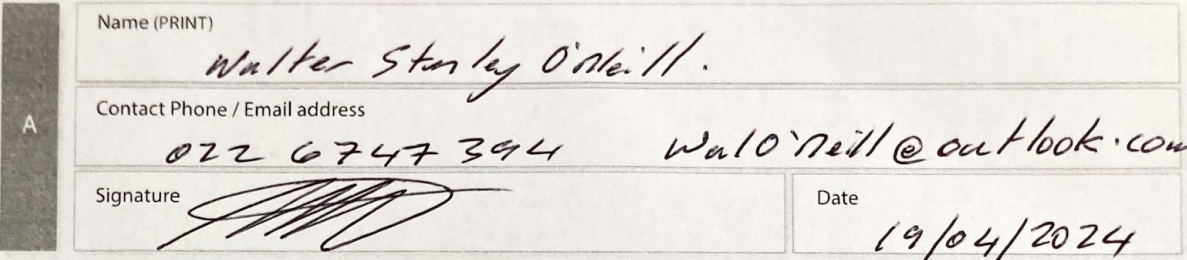 Name (PRINT)
Walter Stanley O'Neill.
Contact Phone / Email address
022 6747 394 WalO'Neill@outlook.com
A
Signature
Date
19/04/2024